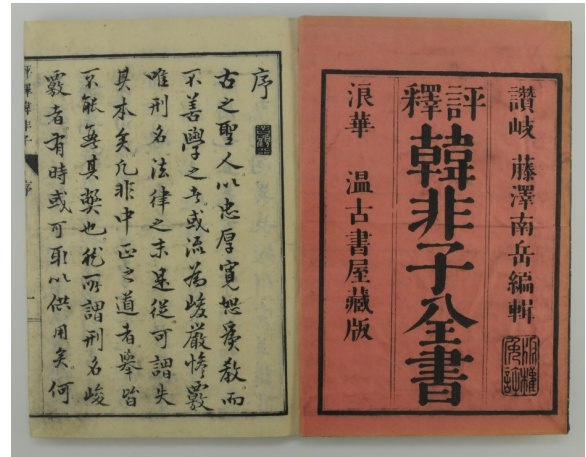 讚岐 藤澤南岳編輯
評釋
韓非子全書
浪華 温古書屋藏版
序
古之聖人以忠厚寬恕爲教而
不善學之者或流為峻嚴慘覈
唯刑名法律之末是從可謂失
其本矣凡非中正之道者舉皆
不能無其弊也然所謂刑名峻
覈者有時或可取以供用矣何
評釋韓非子 序